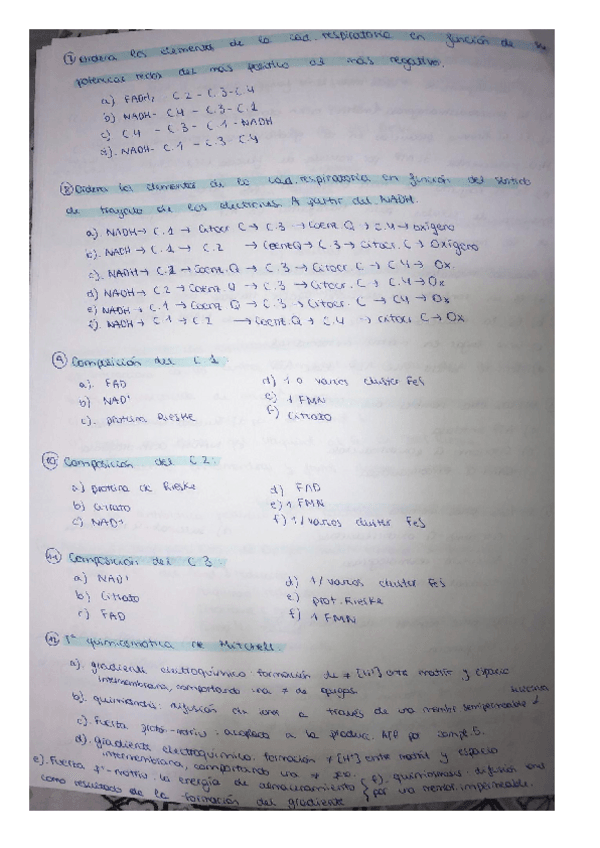 7 Ordena los elementos de la cad. respiratoria en función de su
potencial redox del más positivo al más negativo.
a) FADH2 C2 - C.3 - C.4
b) NADH - C.4 - C.3 - C.1
c) C.4 - C.3 - C.1 - NADH
d). NADH - C.1 - C.3 - C.4
8 Ordena los elementos de la cad. respiratoria en función del sentido
de trayecto de los electrones. A partir del NADH.
a). NADH → C.1 → Citocr C → C.3 → Coent Q → C.4 → oxígeno
NADH → C.1 → C.2 → Coent Q → C.3 → citocr. C → Oxígeno
c). NADH → C.2 → Coent. Q → C.3 → Citocr. C → C4 → Ox.
d) NADH → C2 → Coent Q → C.3 → Citocr. C → C.4 → Ox
e) NADH → C.1 → Coenz Q → C.3 → Citocr. C → C4 → Ox
f). NADH → C1 → C2 → Coent. Q → C.4 → citocr C → Ox
9 Composición del C1.
a). FAD d) 1 o varios cluster FeS
b) NAD+ e) 1 FMN
c). proteína Rieske f) Citrato
10 Composición del C2:
a) proteína de Rieske d) FAD
b) Citrato e) 1 FMN
c) NAD+ f) 1/varios cluster FeS
11 Composición del C3
a) NAD+ d) 1/varios cluster FeS
b) Citrato e) prot. Rieske
c) FAD f) 1 FMN
12 Tª quimiosmótica de Mitchell.
a). gradiente electroquímico formación de ≠ [H+] entre matriz y espacio
intermembrana, comportando una ≠ de cargas
b). quimiosmosis: difusión de iones a través de una membr semipermeable
c). Fuerza protón-motriu: acoplada a la produc. ATP por compl. 5.
d). gradiente electroquímico. formación ≠ [H+] entre matriz y espacio
intermembrana, comportando una ≠
e). Fuerza motriu: la energía de almacenamiento f). quimiosmosis: difusión
como resultado de la formación del gradiente por una membr. impermeable.